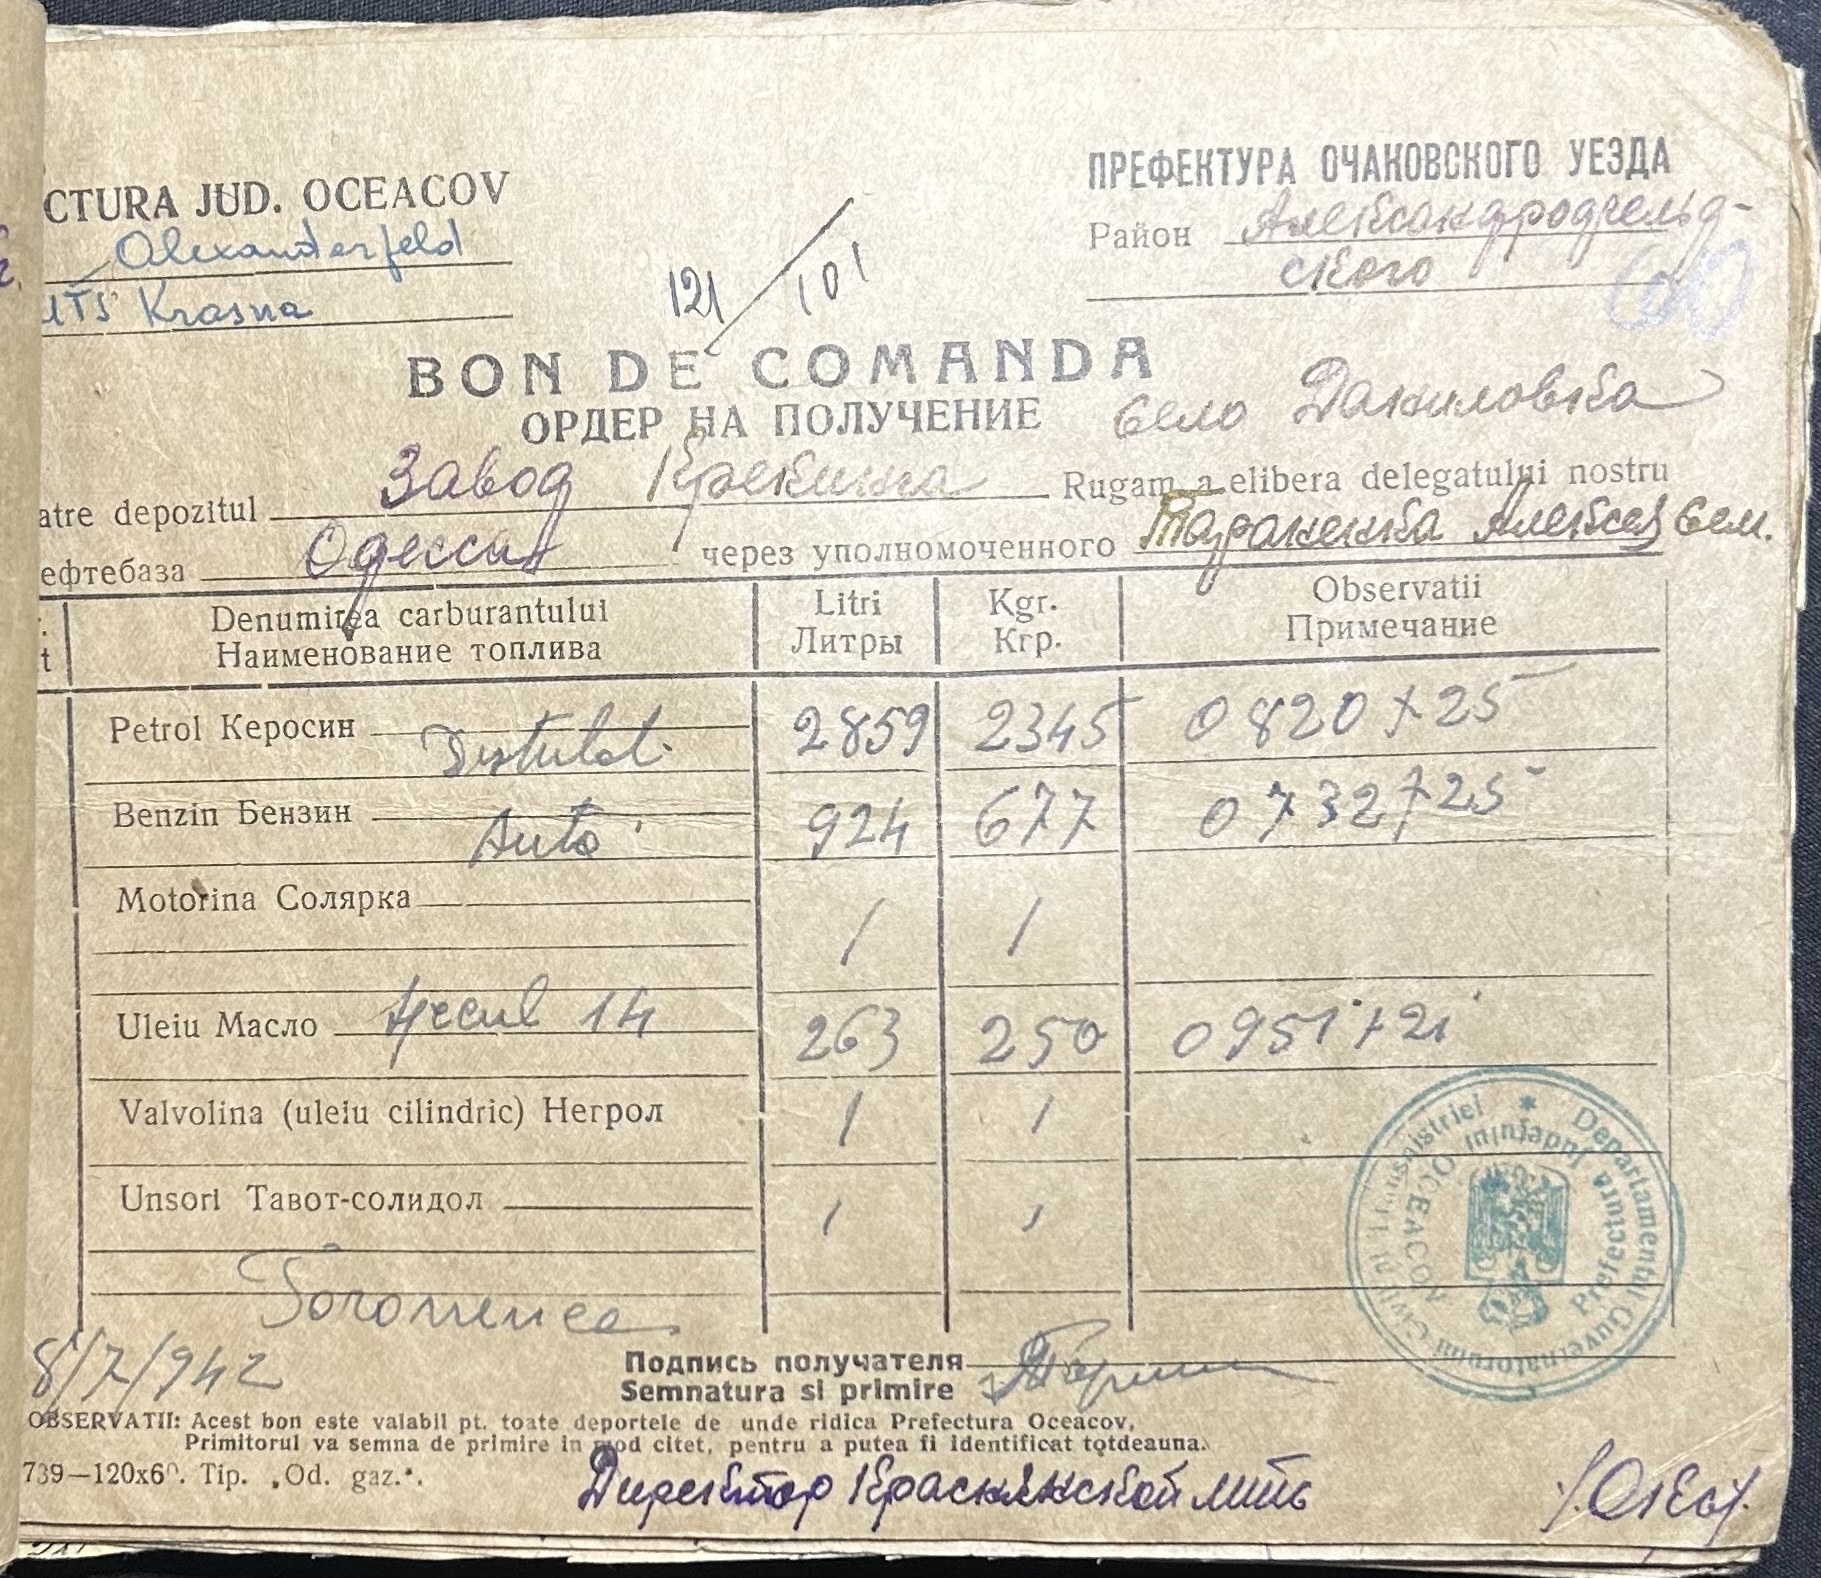 CTURA JUD. OCEACOV
Alexanderfeld
MTS Krasna
121/101
ПРЕФЕКТУРА ОЧАКОВСКОГО УЕЗДА
Район Александрфельд-
ского
600
BON DE COMANDA
ОРДЕР НА ПОЛУЧЕНИЕ
село Даниловка
atre depozitul Завод Крекинга Rugam a elibera delegatului nostru
ефтебаза Одесса через уполномоченного Тараненка Алексей Сем.
t
Denumirea carburantului Litri Kgr. Observatii
Наименование топлива Литры Кгр. Примечание
Petrol Керосин Distilat 2859 2345 0820 + 25
Benzin Бензин Auto 924 677 0732 + 25
Motorina Солярка / /
Uleiu Масло 14 263 250 0951 + 21
Valvolina (uleiu cilindric) Негрол / /
Unsori Тавот-солидол / /
8/7/942
Подпись получателя
Semnatura si primire
Departamentul Guvernatorului Civil al Transnistriei *
Prefectura Județului OCEACOV
OBSERVATII: Acest bon este valabil pt. toate deportele de unde ridica Prefectura Oceacov.
Primitorul va semna de primire in mod citet, pentru a putea fi identificat totdeauna.
739—120x60. Tip. „Od. gaz.".
Директор Краснянской мтс